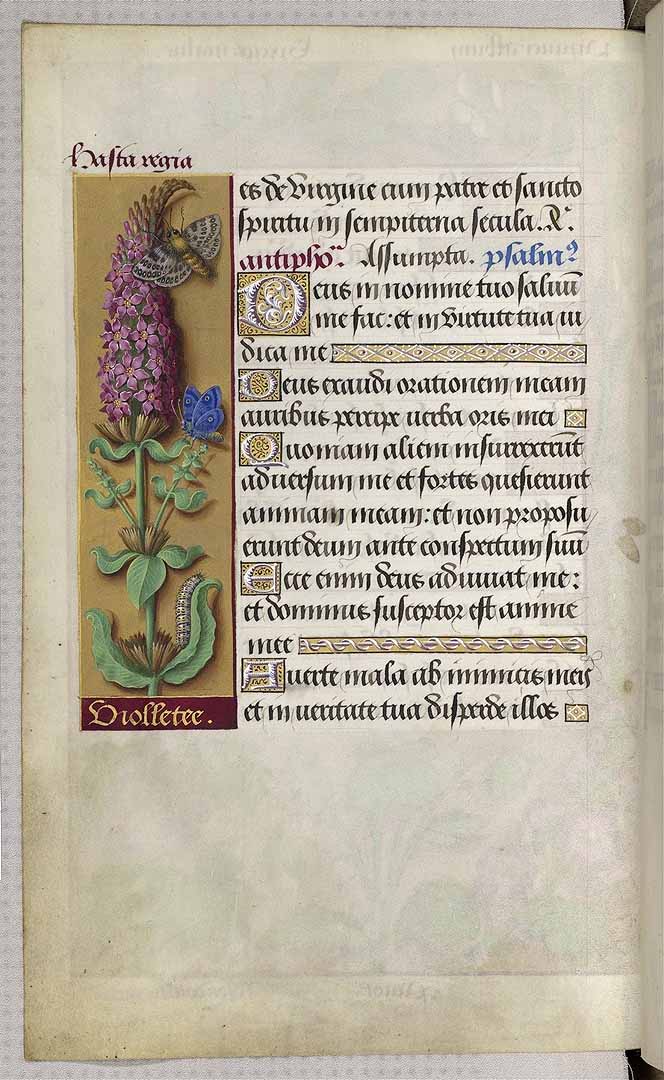 Hasta regia
es de virgine cum patre et sancto
spiritu in sempiterna secula. R.
antipho. Assumpta. psalmꝰ
Deus in nomine tuo saluū
me fac: et in virtute tua iu
dica me
Deus exaudi orationem meam
auribus percipe uerba oris mei
Quoniam alieni insurrexerūt
aduersum me et fortes quesierunt
animam meam: et non proposu
erunt deum ante conspectum suū
Ecce enim deus adiuuat me:
et dominus susceptor est anime
mee
Auerte mala ab inimicis meis
et in ueritate tua disperde illos
Violletee.